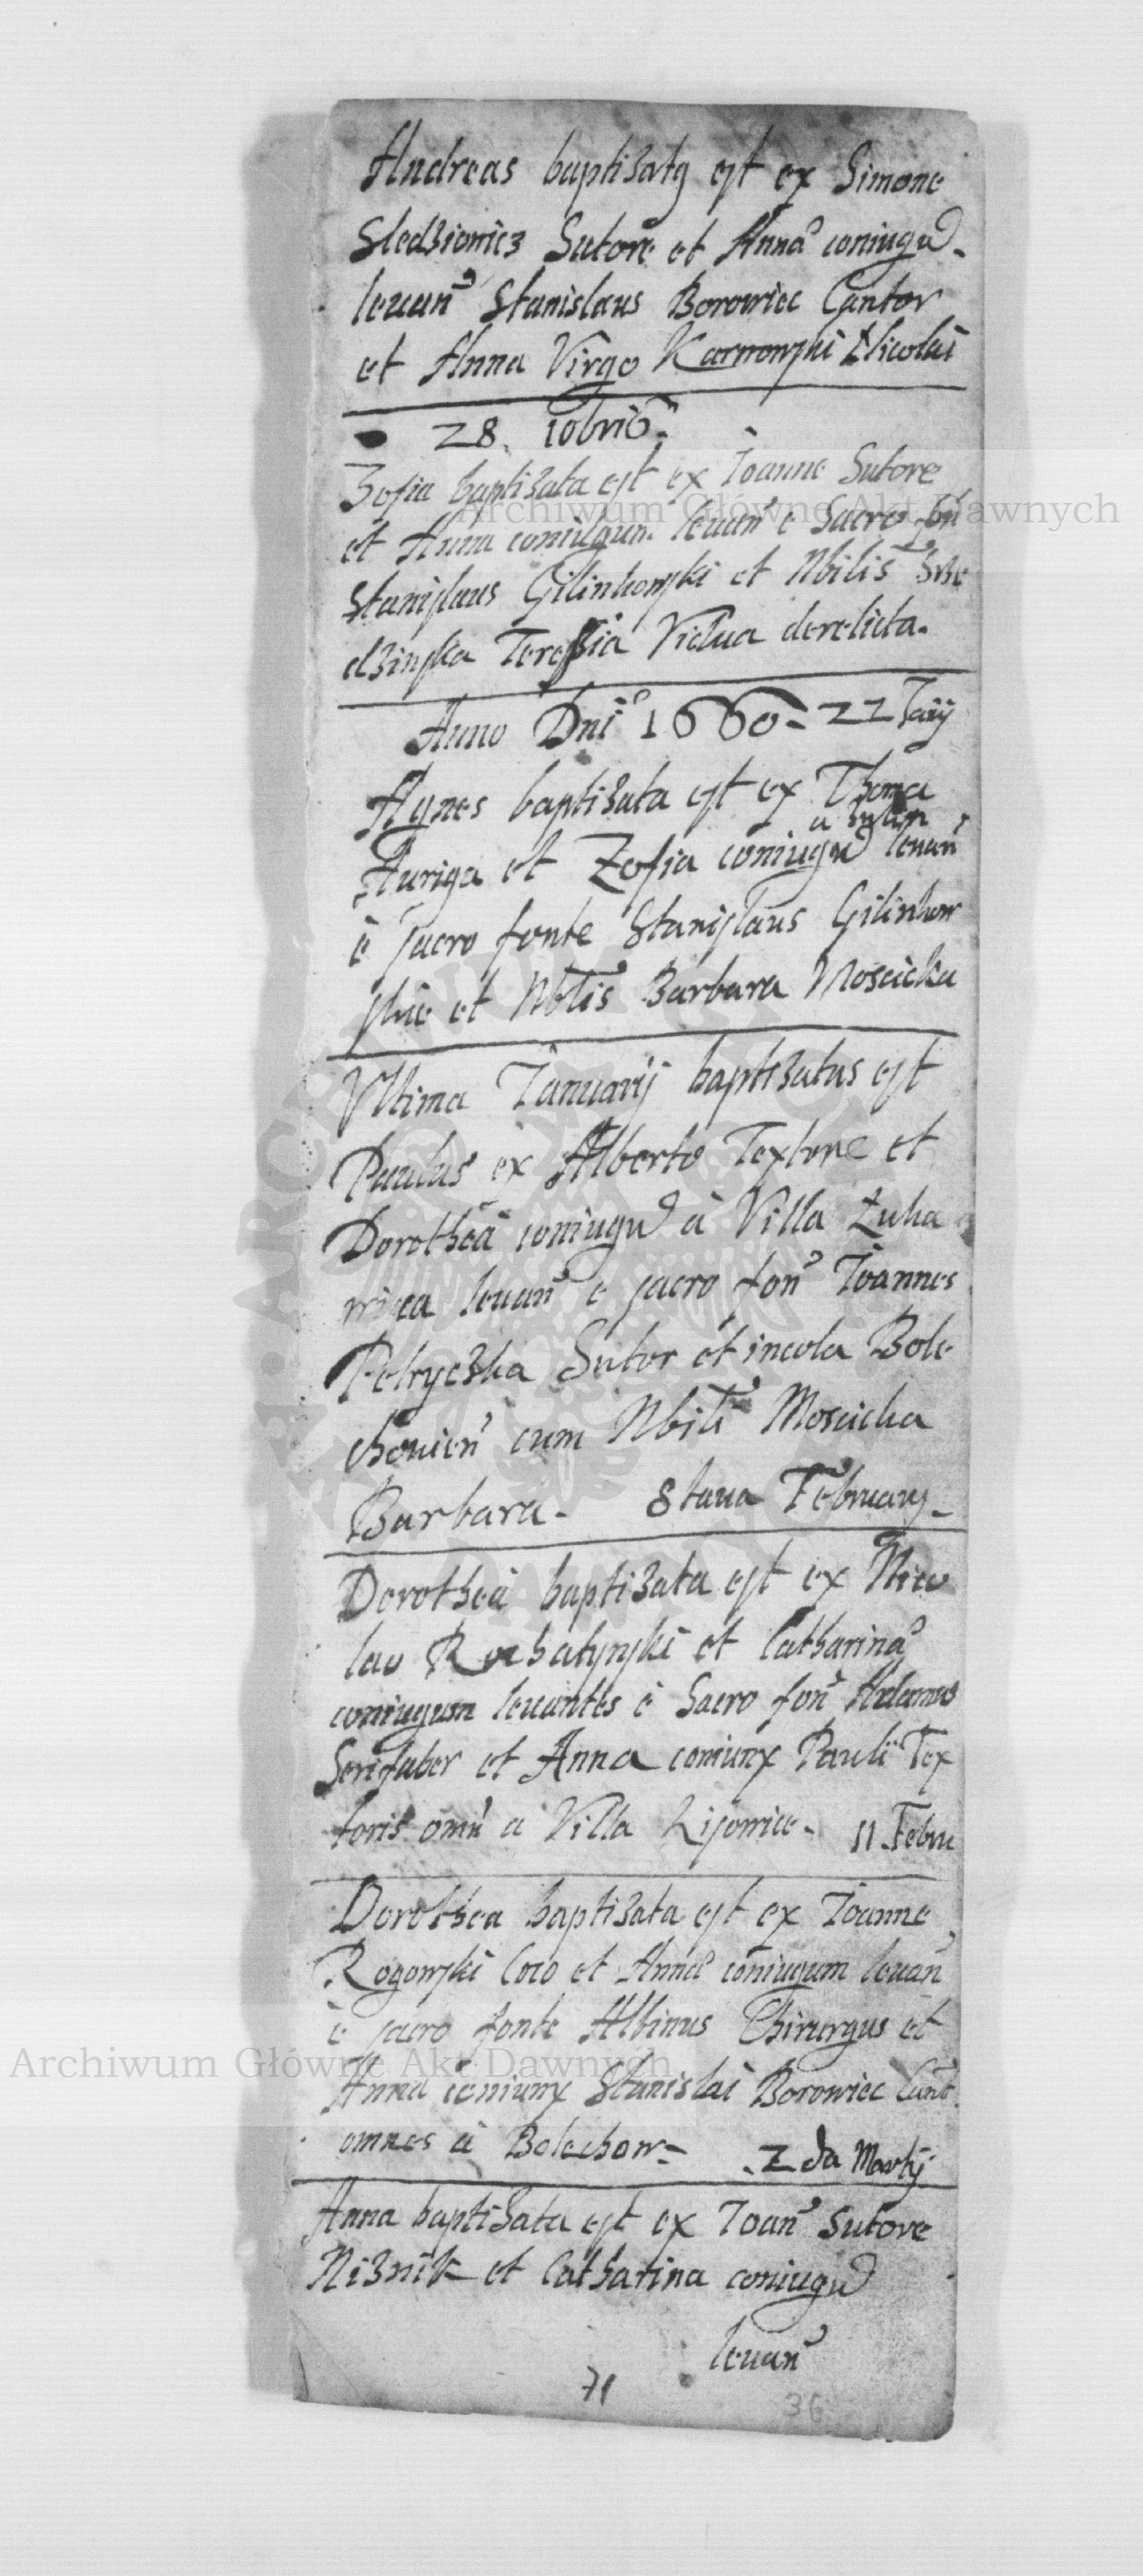 Andreas baptisatq est ex Simone
Sledzionicz Sutore et Anna coniugū.
leuan̄ Stanislaus Borowiec Cantor
et Anna Virgo Karnowski Nicolai
28. 10bris.
Zofia baptizata est ex Ioanne Sutore
et Anna coniugum leuan̄ e Sacro fon̄
Stanislaus Gilinkowski et Nbilis
dzinska Teressia Vidua derelicta.
Anno Dni 1660 - 22 Iaij
Agnes baptizata est ex Thoma
Auriga et Zofia coniugū leuan̄
è sacro fonte Stanislaus Gilinkow
skie et Nblis Barbara Moscicka
Vltima Ianuarij baptizatus est
Paulus ex Alberto Textore et
Dorothea coniugū à Villa Łuka
wica leuan̄ e sacro fon̄ Ioannes
Petryczka Sutor et incola Bole
chouien̄ cum Nbili Moscicka
Barbara. 8taua Februarij.
Dorothea baptizata est ex Nico
lao Rohatynski et Catharina
coniugum leuantes è Sacro fon̄ Adamus
Serifaber et Anna coniunx Pauli Tex
toris omn̄ à Villa Lisowice. 11. Febru
Dorothea baptizata est ex Ioanne
Rogowski Coco et Anna coniugum leuan̄
è sacro fonte Albinus Chirurgus et
Anna coniunx Stanislai Borowiec Cant.
omnes à Bolechow. 2da Martij
Anna baptizata est ex Ioan̄ Sutore
Niznik et Catharina coniugū
leuan̄
71
36
Archiwum Główne Akt Dawnych
Archiwum Główne Akt Dawnych